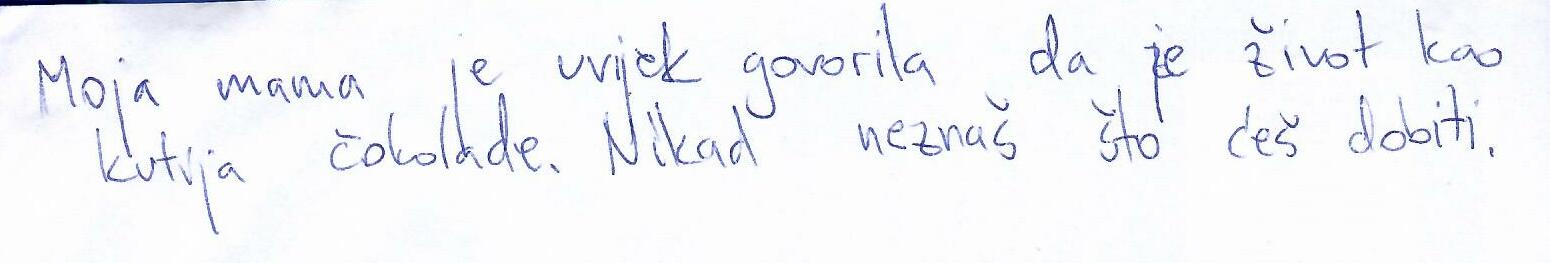 Moja mama je uvijek govorila da je život kao
kutija čokolade. Nikad neznaš što ćeš dobiti.